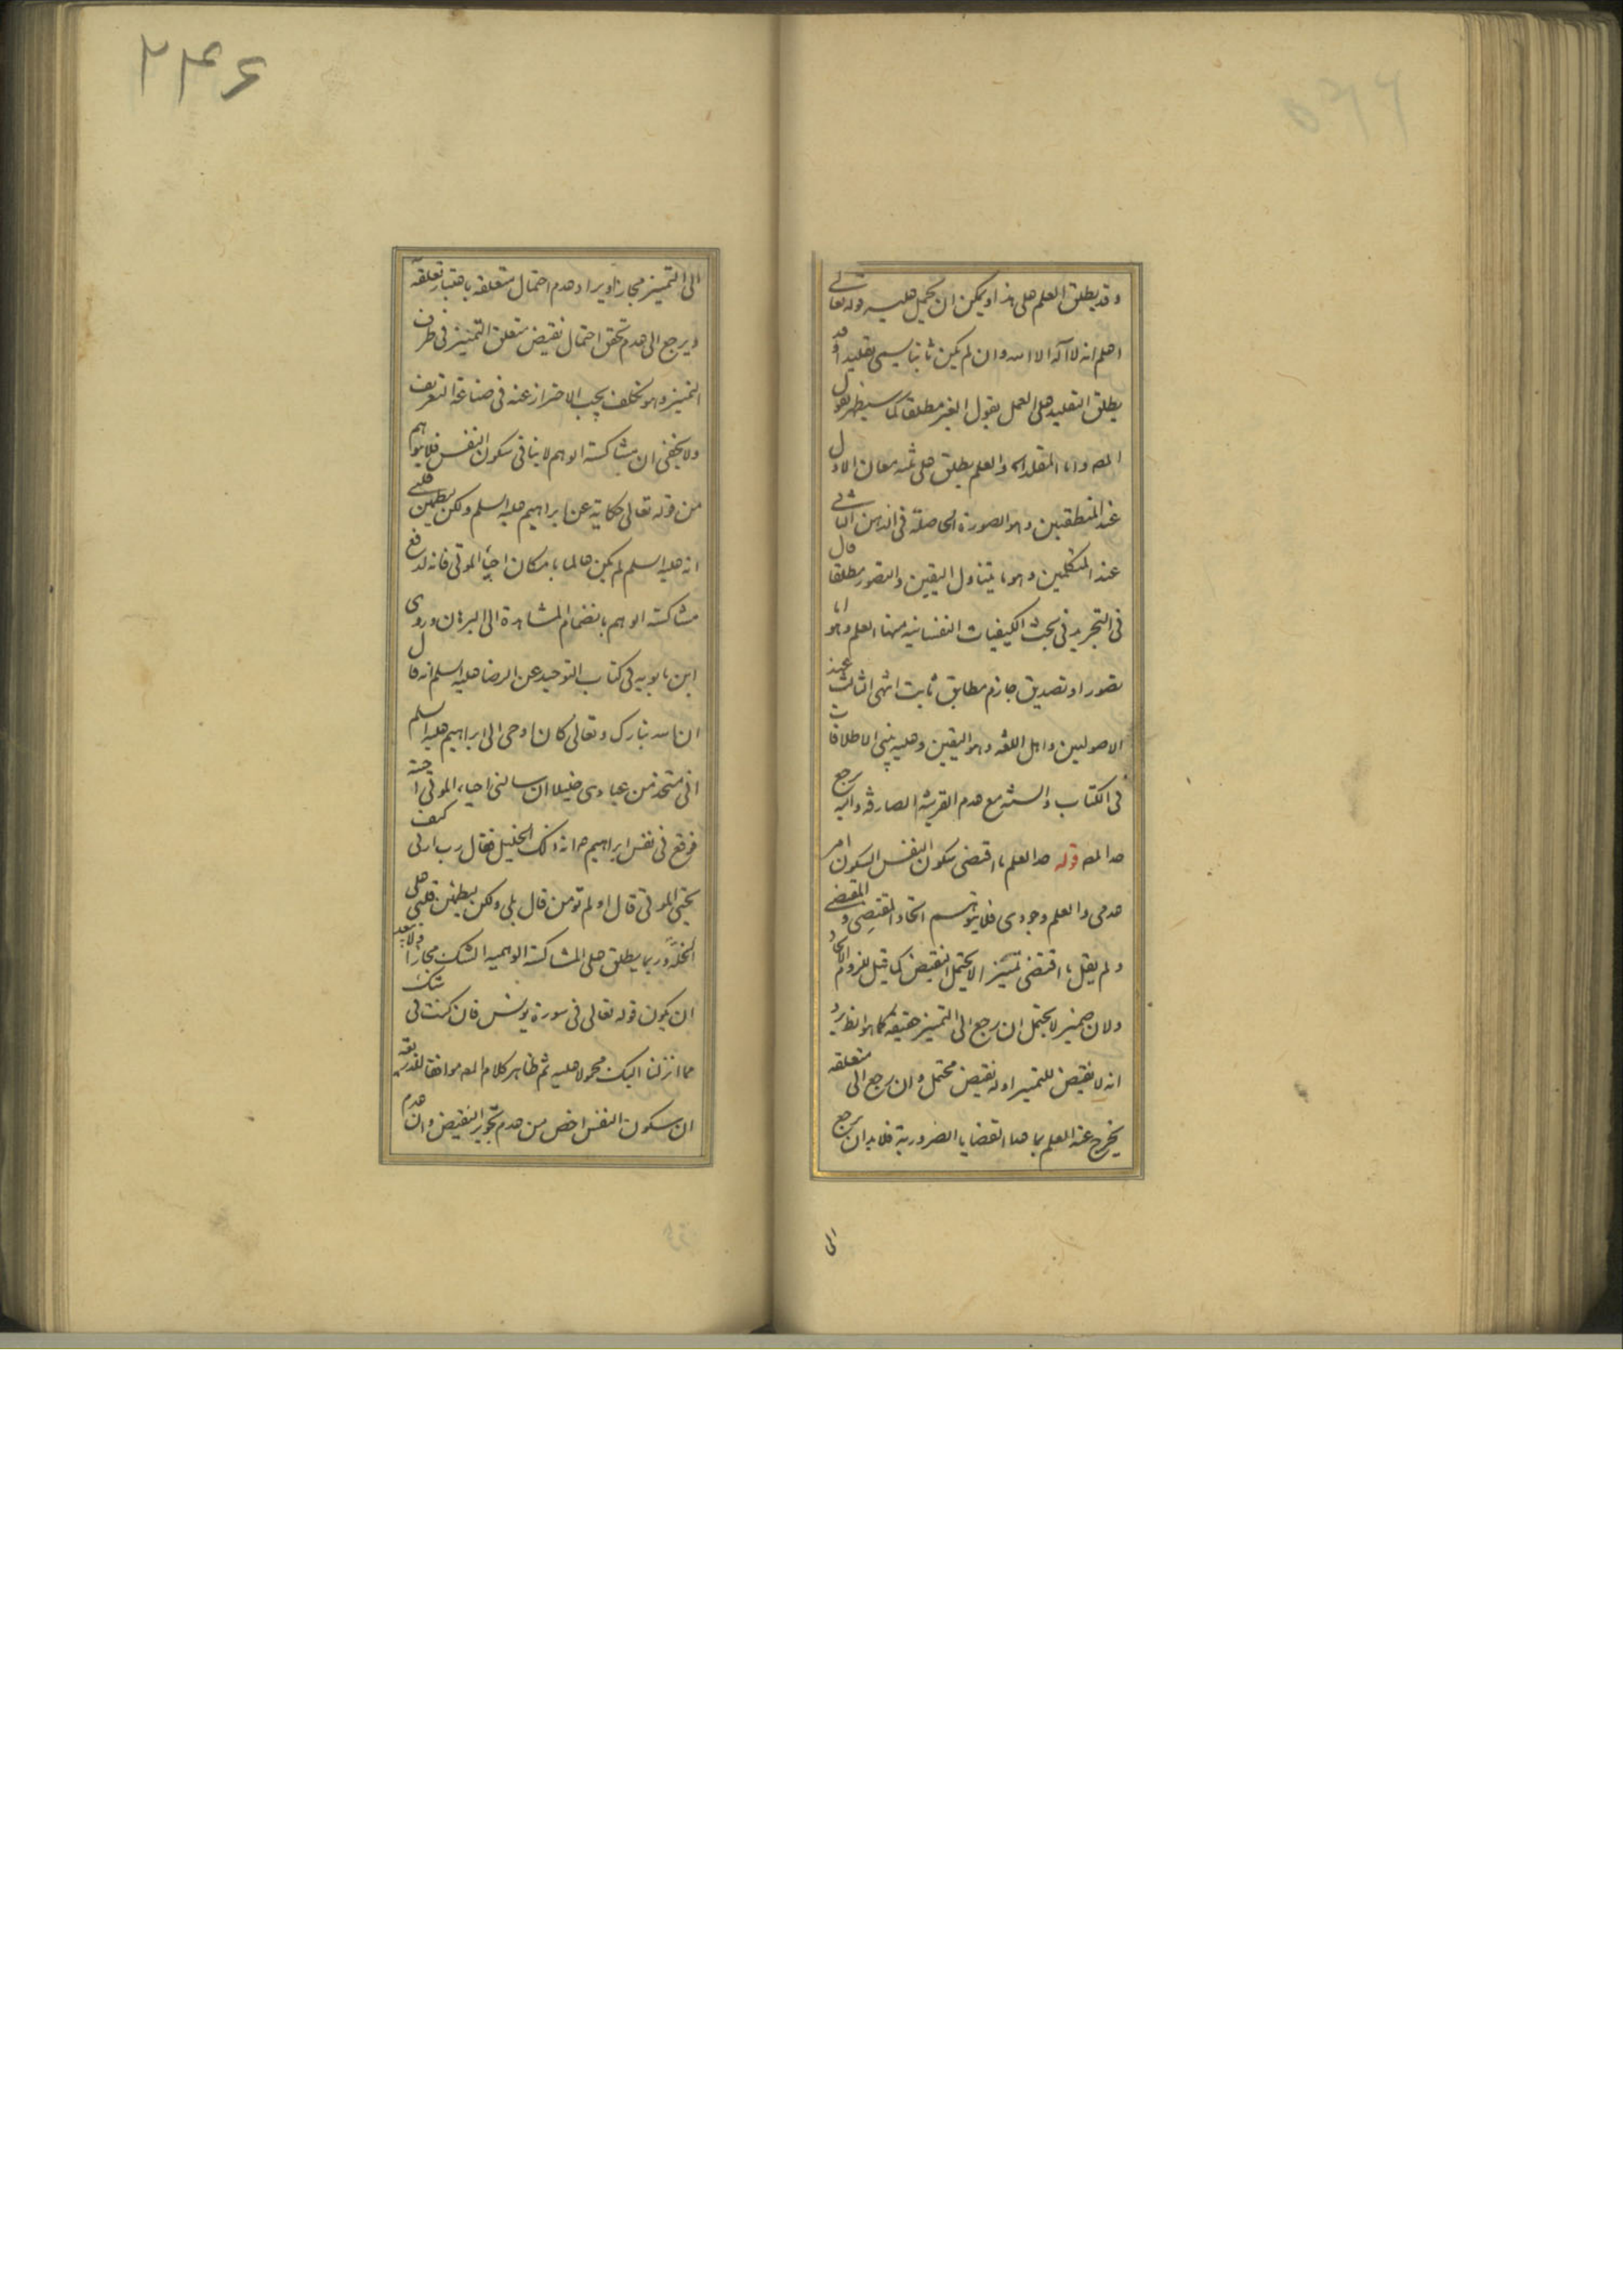 وقد يطلق العلم على هذا ويمكن ان يحمل عليه قوله تعالى
اعلم انه لا آله الا الله وان لم يكن ثابتا يسمى تقليدا وقد
يطلق التقليد على العمل بقول الغير مطلقا كما سيظهر بقول
المص واما المقلد اه والعلم يطلق على ثلثه معان الاول
عند المنطقيين وهو الصورة الحاصلة فى الذهن الثانى
عند المتكلمين وهو ما يتناول اليقين والتصور مطلقا قال
فى التجريد فى بحث الكيفيات النفسانيه منها العلم وهو اما
تصور او تصديق جازم مطابق ثابت انتهى الثالث عند
الاصوليين واهل اللغه وهو اليقين وعليه يبنى الاطلاقات
فى الكتاب والسنه مع عدم القرينه الصارفه واليه يرجع
حد المص قوله حد العلم ما اقتضى سكون النفس السكون امر
عدمى والعلم وجودى فلا يتوهم اتحاد المقتضِى والمقتضى
ولم يقل ما اقتضى تميّزا لا يحتمل النقيض كما قيل للزوم الاتحاد
ولان ضمير لا يحتمل ان رجع الى التميز حقيقه كما هو الظ يرد
انه لا نقيض للتميز او له نقيض محتمل وان رجع الى متعلقه
يخرج عنه العلم بما عدا القضايا الضرورية فلا بد ان يرجع
الى
٢٤٦
الى التميز مجازا ويراد عدم احتمال متعلقه باعتبار تعلقه
ويرجع الى عدم تحقق احتمال نقيض متعلق التميز فى طرف
التميز وهو تكلف يجب الاحتراز عنه فى صناعة التعريف
ولا يخفى ان مشاكسة الوهم لا ينافى سكون النفس فلا يتوهم
من قوله تعالى حكاية عن ابراهيم عليه السلم ولكن ليطمئن قلبى
انه عليه السلم لم يكن عالما بامكان احياء الموتى فانه لدفع
مشاكسة الوهم بانضمام المشاهدة الى البرهان وروى
ابن بابويه فى كتاب التوحيد عن الرضا عليه السلم انه قال
ان الله تبارك وتعالى كان اوحى الى ابراهيم عليه السلم
انى متخذ من عبادى خليلا ان سالنى احياء الموتى اجبته
فوقع فى نفس ابراهيم ع انه ذلك الخليل فقال رب ارنى كيف
تحيى الموتى قال اولم تؤمن قال بلى ولكن ليطمئن قلبى على
الخلّة وربما يطلق على المشاكسة الوهميه الشك مجازا ولا يبعد
ان يكون قوله تعالى فى سورة يونس فان كنت فى شك
مما انزلنا اليك محمولا عليه ثم ظاهر كلام المص موافقا
ان سكون النفس اخص من عدم تجويز النقيض وان عدم